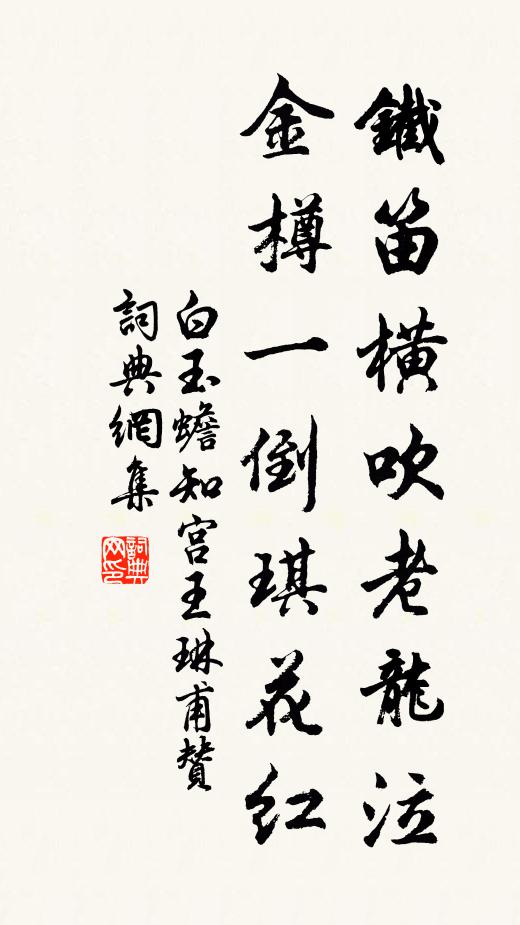 鐵笛橫吹老龍泣
金樽一倒琪花紅
白玉蟾知宮王琳甫贊
詞典網集
詞典
网印